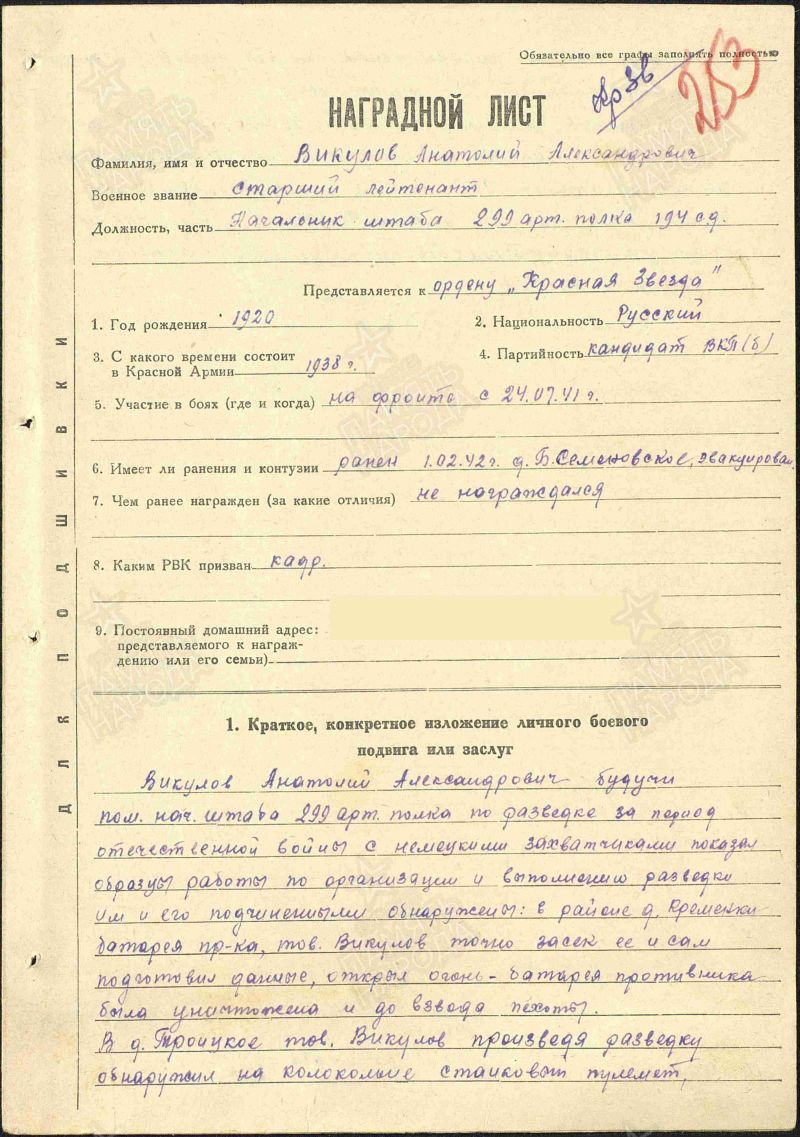 Обязательно все графы заполнять полностью
Кр Зв
253
НАГРАДНОЙ ЛИСТ
Фамилия, имя и отчество Викулов Анатолий Александрович
Военное звание старший лейтенант
Должность, часть Начальник штаба 299 арт. полка 194 сд.
Представляется к ордену „Красная Звезда"
1. Год рождения 1920
2. Национальность Русский
3. С какого времени состоит в Красной Армии 1938 г.
4. Партийность кандидат ВКП(б)
5. Участие в боях (где и когда) на фронте с 24.07.41 г.
6. Имеет ли ранения и контузии ранен 1.02.42 г. д. Б. Семеновское, эвакуирован
7. Чем ранее награжден (за какие отличия) не награждался
8. Каким РВК призван кадр.
9. Постоянный домашний адрес:
представляемого к награж-
дению или его семьи)
1. Краткое, конкретное изложение личного боевого
подвига или заслуг
Викулов Анатолий Александрович будучи
пом. нач. штаба 299 арт. полка по разведке за период
отечественной войны с немецкими захватчиками показал
образцы работы по организации и выполнению разведки
им и его подчиненными обнаружены: в районе д. Кременки
батарея пр-ка, тов. Викулов точно засек ее и сам
подготовил данные, открыл огонь - батарея противника
была уничтожена и до взвода пехоты.
В д. Троицкое тов. Викулов произведя разведку
обнаружил на колокольне станковый пулемет,
ДЛЯ ПОДШИВКИ
ПАМЯТЬ НАРОДА